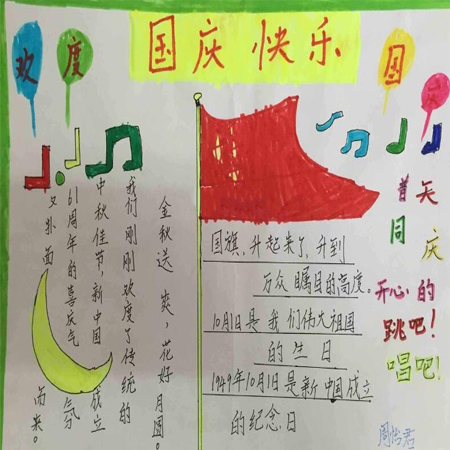 国庆快乐
欢度国
金秋送爽,花好月圆。
我们刚刚欢度了传统的
中秋佳节,新中国成立
61周年的喜庆气氛
又扑面而来。
国旗,升起来了,升到
万众瞩目的高度。
10月1日是我们伟大祖国
的生日
1949年10月1日是新中国成立
的纪念日
普天
同庆
开心的
跳吧!
唱吧!
周怡君